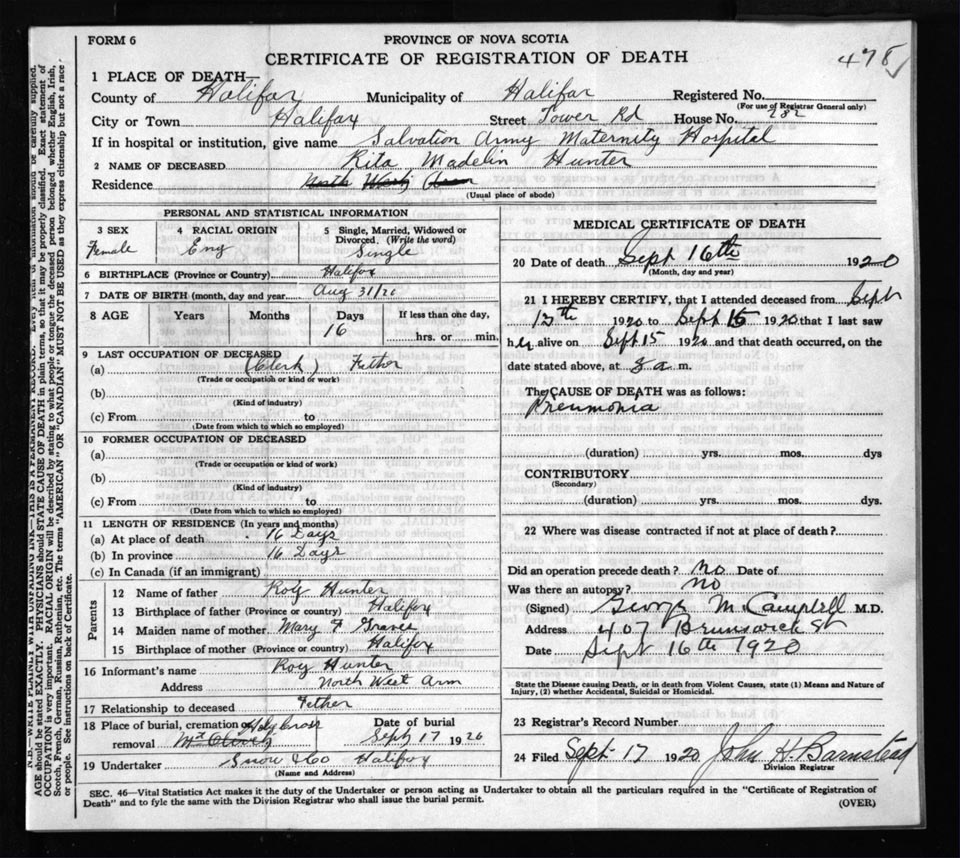 FORM 6
PROVINCE OF NOVA SCOTIA
CERTIFICATE OF REGISTRATION OF DEATH
478
1 PLACE OF DEATH—
County of Halifax Municipality of Halifax Registered No.
(For use of Registrar General only)
City or Town Halifax Street Tower Rd House No. 282
If in hospital or institution, give name Salvation Army Maternity Hospital
2 NAME OF DECEASED Rita Madelin Hunter
Residence North West Arm
(Usual place of abode)
PERSONAL AND STATISTICAL INFORMATION
3 SEX 4 RACIAL ORIGIN 5 Single, Married, Widowed or Divorced. (Write the word)
Female Eng Single
6 BIRTHPLACE (Province or Country) Halifax
7 DATE OF BIRTH (month, day and year) Aug 31/20
8 AGE Years Months Days If less than one day,
16 hrs. or min.
9 LAST OCCUPATION OF DECEASED
(a) (Clerk) Father
(Trade or occupation or kind or work)
(b)
(Kind of industry)
(c) From to
(Date from which to which so employed)
10 FORMER OCCUPATION OF DECEASED
(a)
(Trade or occupation or kind or work)
(b)
(Kind of industry)
(c) From to
(Date from which to which so employed)
11 LENGTH OF RESIDENCE (In years and months)
(a) At place of death 16 Days
(b) In province 16 Days
(c) In Canada (if an immigrant)
Parents
12 Name of father Roy Hunter
13 Birthplace of father (Province or country) Halifax
14 Maiden name of mother Mary F
15 Birthplace of mother (Province or country) Halifax
16 Informant's name Roy Hunter
Address North West Arm
17 Relationship to deceased Father
18 Place of burial, cremation or removal Holy Cross Mt Olivet Date of burial Sept 17 1920
19 Undertaker Snow & Co Halifax
(Name and Address)
MEDICAL CERTIFICATE OF DEATH
20 Date of death Sept 16th 1920
(Month, day and year)
21 I HEREBY CERTIFY, that I attended deceased from Sept
13th 1920 to Sept 15 1920 that I last saw
her alive on Sept 15 1920 and that death occurred, on the
date stated above, at 3 a m.
The CAUSE OF DEATH was as follows:
Pneumonia
(duration) yrs. mos. dys
CONTRIBUTORY
(Secondary)
(duration) yrs. mos. dys.
22 Where was disease contracted if not at place of death?
Did an operation precede death? No Date of
Was there an autopsy? No
(Signed) George M Campbell M.D.
Address 407 Brunswick St
Date Sept 16th 1920
State the Disease causing Death, or in death from Violent Causes, state (1) Means and Nature of
Injury, (2) whether Accidental, Suicidal or Homicidal.
23 Registrar's Record Number
24 Filed Sept 17 1920 John H. Barnstead
Division Registrar
SEC. 46—Vital Statistics Act makes it the duty of the Undertaker or person acting as Undertaker to obtain all the particulars required in the "Certificate of Registration of
Death" and to fyle the same with the Division Registrar who shall issue the burial permit. (OVER)
N.B.—WRITE PLAINLY WITH UNFADING INK—THIS IS A PERMANENT RECORD. Every item of information should be carefully supplied.
AGE should be stated EXACTLY. PHYSICIANS should STATE CAUSE OF DEATH in plain terms, so that it may be properly classified. Exact statement of
OCCUPATION is very important. RACIAL ORIGIN will be described by stating to what people or tongue the deceased person belonged whether English, Irish,
Scotch, French, German, Russian, Ruthenian, etc. The terms "AMERICAN" OR "CANADIAN" MUST NOT BE USED as they express citizenship but not a race
or people. See instructions on back of Certificate.